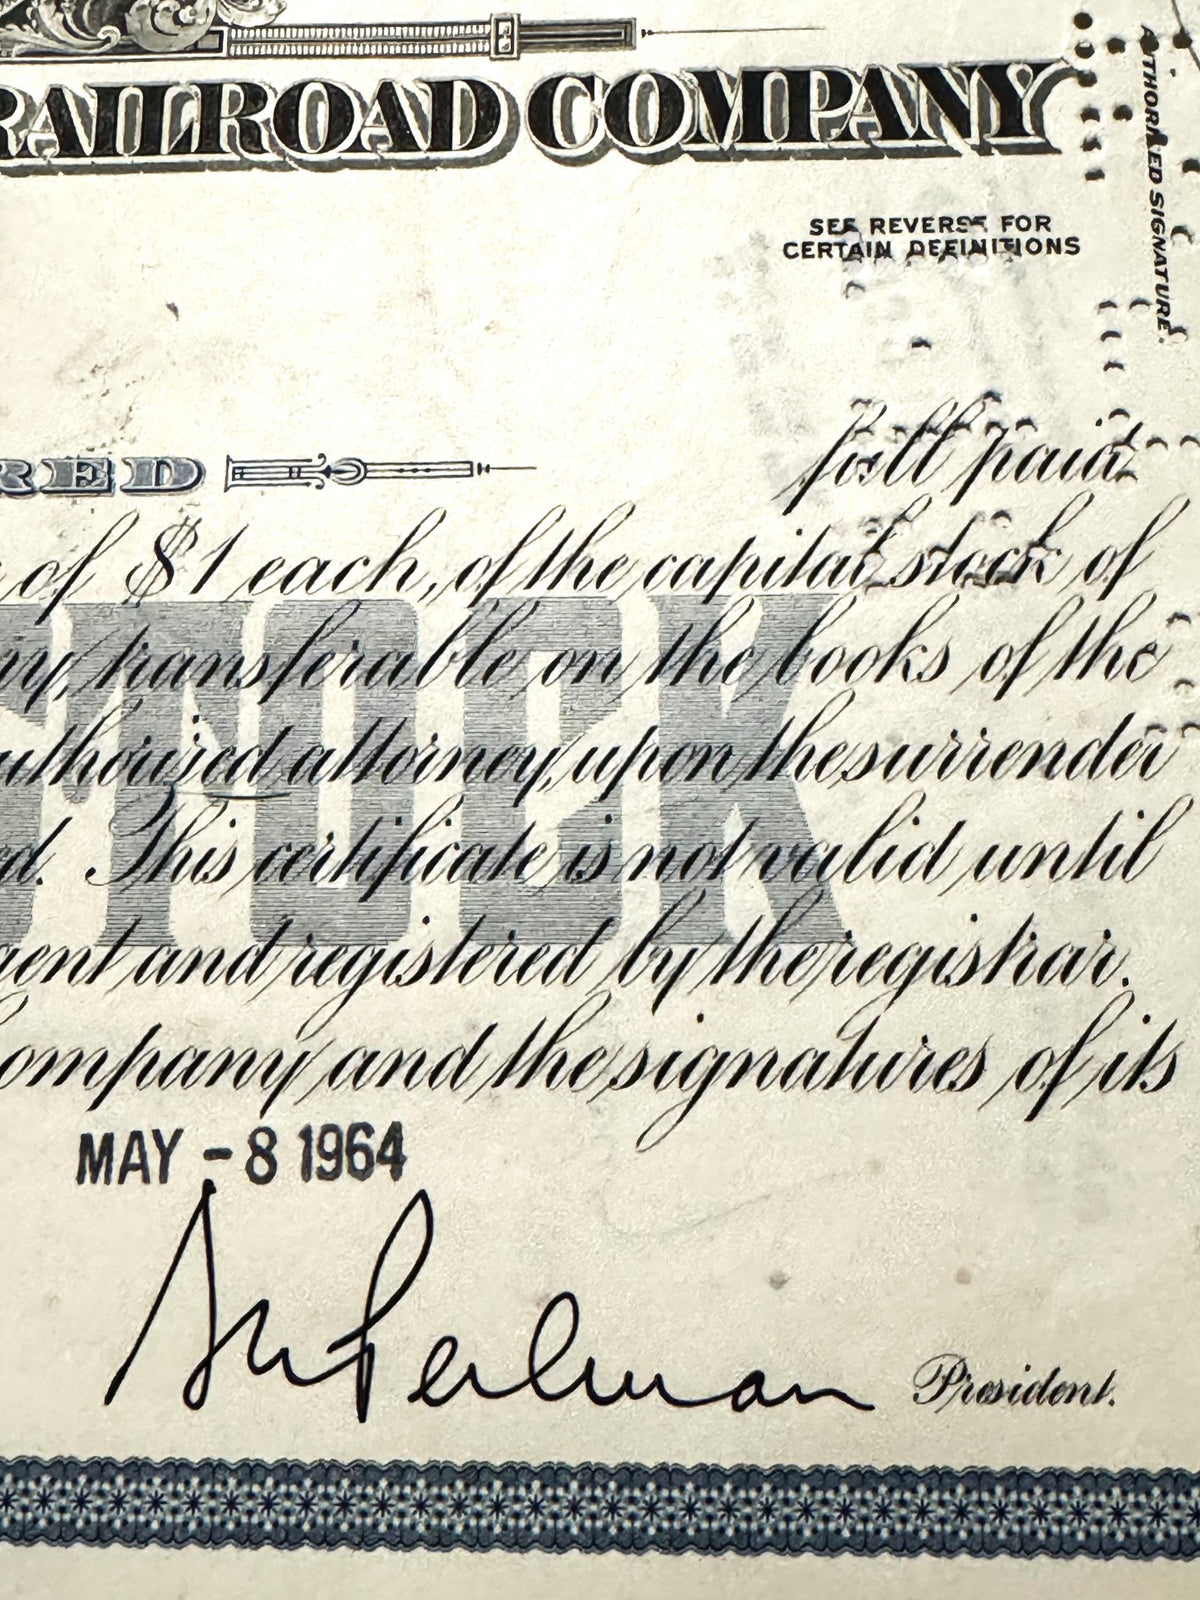 RAILROAD COMPANY
AUTHORIZED SIGNATURE.
SEE REVERSE FOR
CERTAIN DEFINITIONS
RED
full paid
of $1 each, of the capital stock of
transferable on the books of the
attorney, upon the surrender
This certificate is not valid until
and registered by the registrar.
ompany and the signatures of its
STOCK
MAY - 8 1964
Perlman
President.